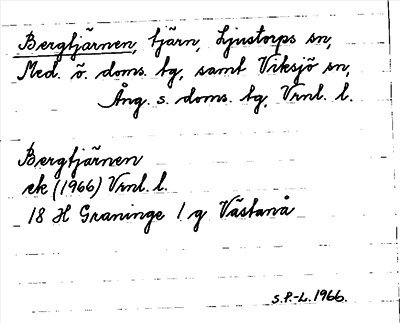 Bergtjärnen, tjärn, Ljustorps sn,
Med. ö. doms. tg, samt Viksjö sn,
Ång. s. doms. tg, Vrnl. l.
Bergtjärnen
ek (1966) Vrnl. l.
18 H Graninge 1 g Västanå
S.P.-L. 1966.